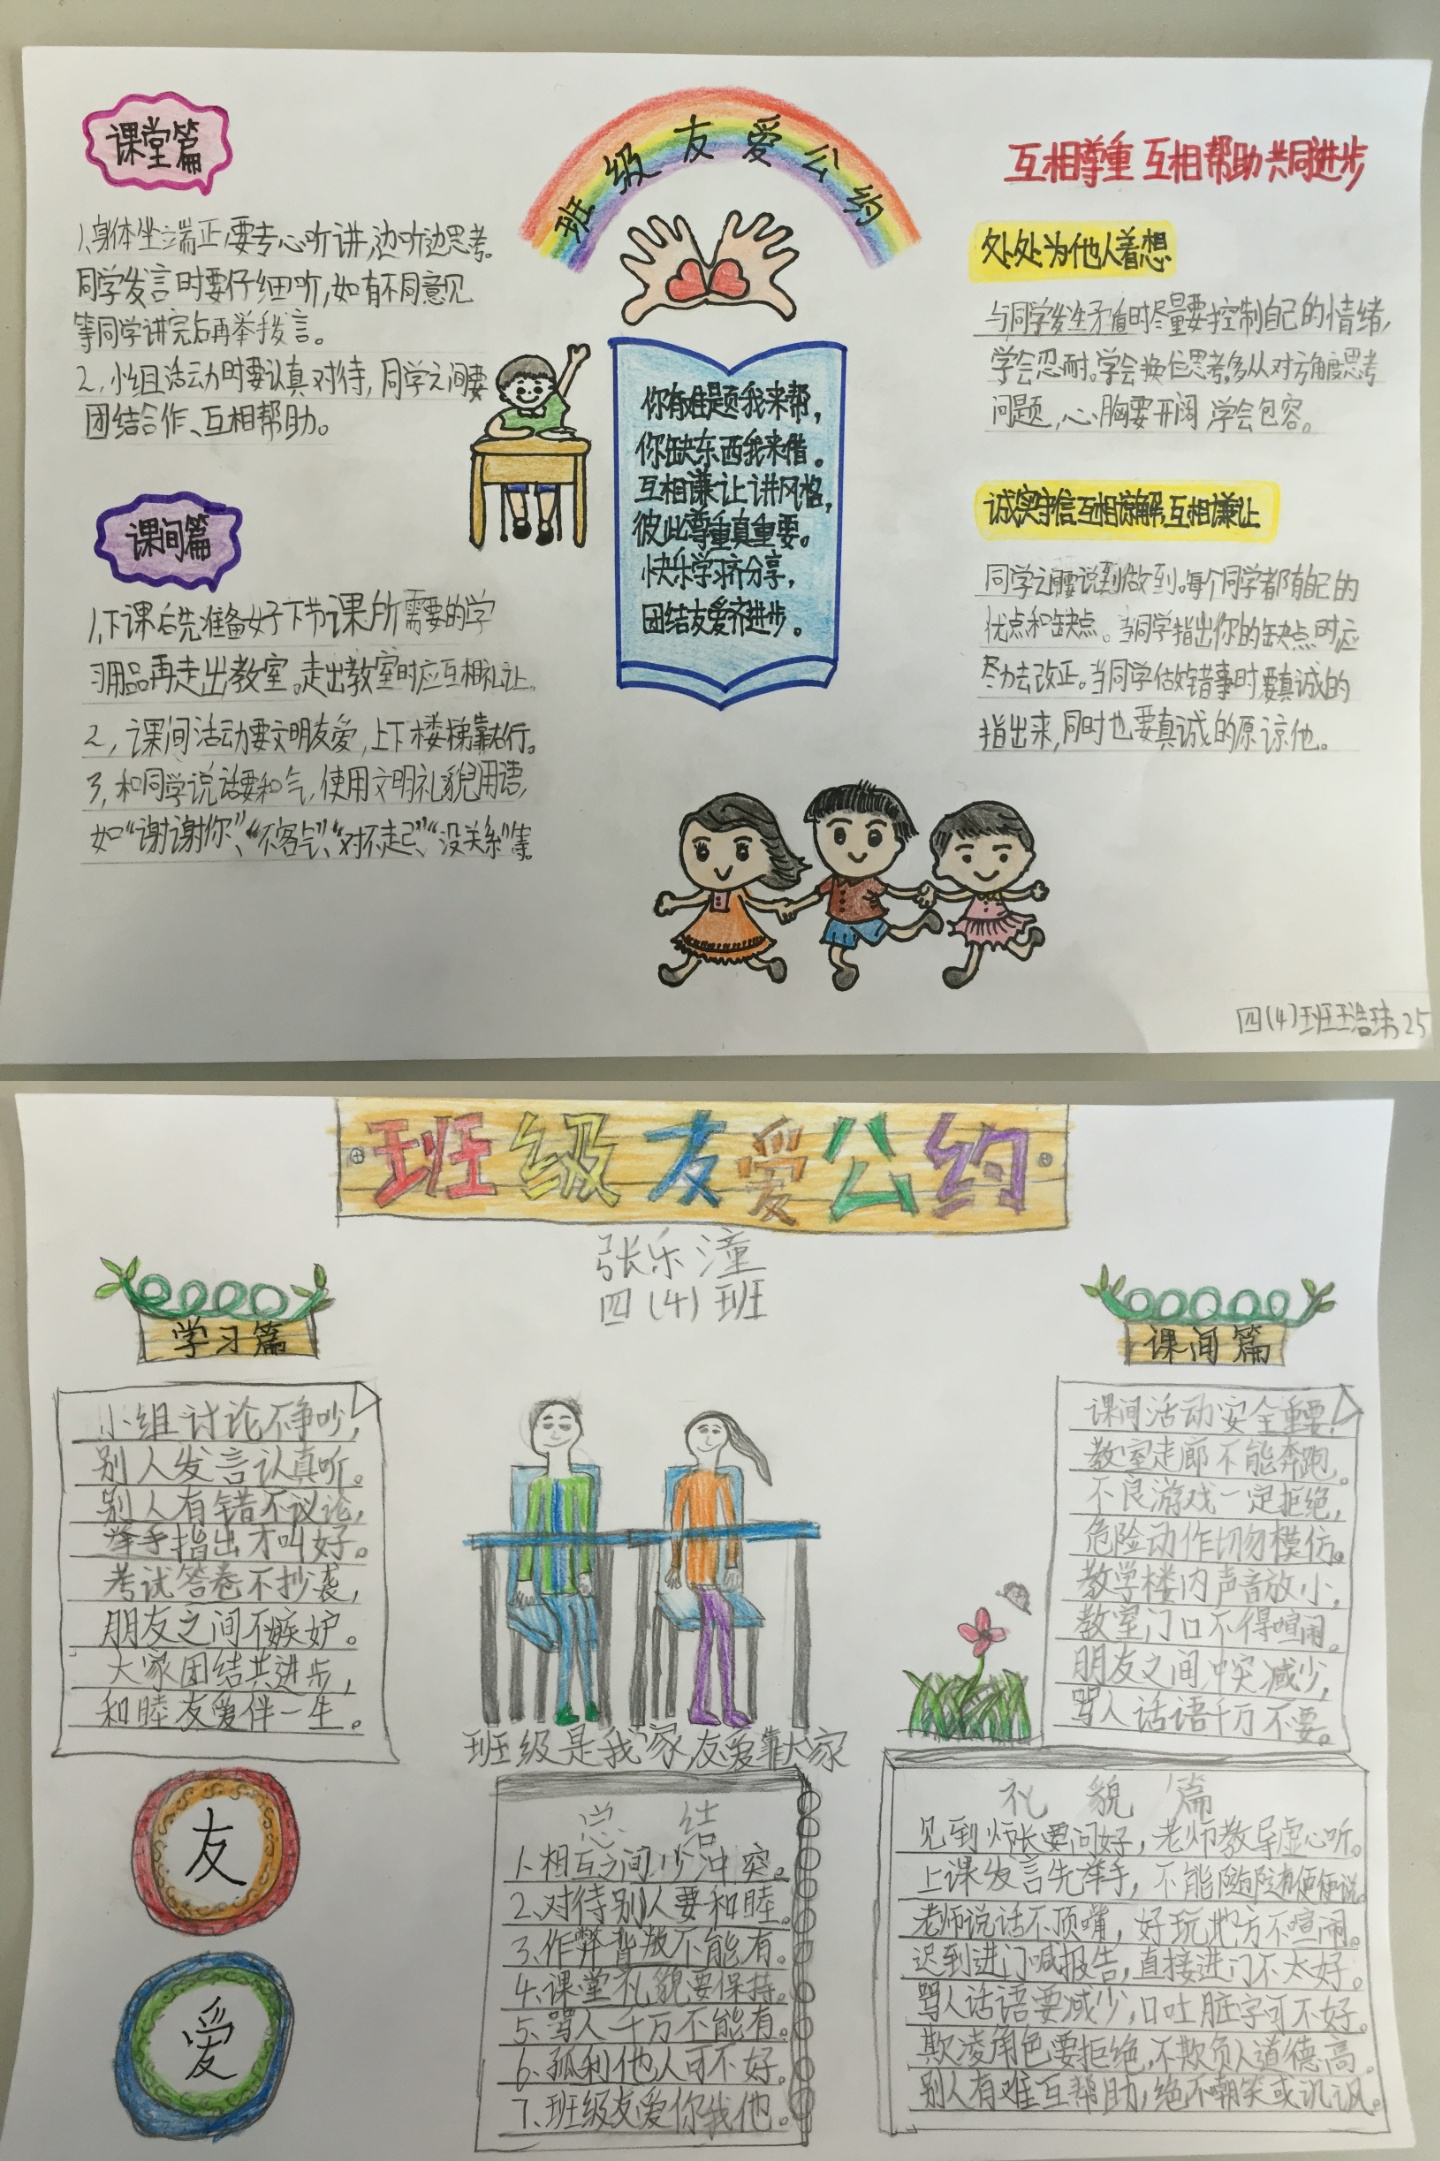 班级友爱公约
课堂篇
1,身体坐立端正,要专心听讲,边听边思考。
同学发言时要仔细听,如有不同意见
等同学讲完后再举手发言。
2,小组活动时要认真对待,同学之间要
团结合作、互相帮助。
课间篇
1,下课后先准备好下节课所需要的学
习用品再走出教室。走出教室时应互相礼让。
2,课间活动要文明友爱,上下楼梯靠右行。
3,和同学说话要和气,使用文明礼貌用语,
如“谢谢你”、“不客气”、“对不起”、“没关系”等。
你有难题我来帮,
你缺东西我来借。
互相谦让讲风格,
彼此尊重真重要。
快乐学习齐分享,
团结友爱齐进步。
互相尊重 互相帮助 共同进步
处处为他人着想
与同学发生矛盾时尽量要控制自己的情绪,
学会忍耐。学会换位思考,多从对方角度思考
问题,心胸要开阔,学会包容。
诚实守信,互相谅解,互相谦让
同学之间要说到做到。每个同学都有自己的
优点和缺点。当同学指出你的缺点时应
尽力去改正。当同学做错事时要真诚的
指出来,同时也要真诚的原谅他。
四(4)班 25
班级友爱公约
张乐潼
四(4)班
学习篇
小组讨论不争吵,
别人发言认真听。
别人有错不议论,
举手指出才叫好。
考试答卷不抄袭,
朋友之间不嫉妒。
大家团结共进步,
和睦友爱伴一生。
课间篇
课间活动安全重要,
教室走廊不能奔跑。
不良游戏一定拒绝,
危险动作切勿模仿。
教学楼内声音放小,
教室门口不得喧闹。
朋友之间冲突减少,
骂人话语千万不要。
班级是我家 友爱靠大家
友
爱
总结
1、相互之间少冲突。
2、对待别人要和睦。
3、作弊背叛不能有。
4、课堂礼貌要保持。
5、骂人千万不能有。
6、孤利他人可不好。
7、班级友爱你我他。
礼貌篇
见到师长要问好,老师教导虚心听。
上课发言先举手,不能随随便便说。
老师说话不顶嘴,好玩地方不喧闹。
迟到进门喊报告,直接进门不太好。
骂人话语要减少,口吐脏字可不好。
欺凌角色要拒绝,不欺负人道德高。
别人有难互帮助,绝不嘲笑或讥讽。